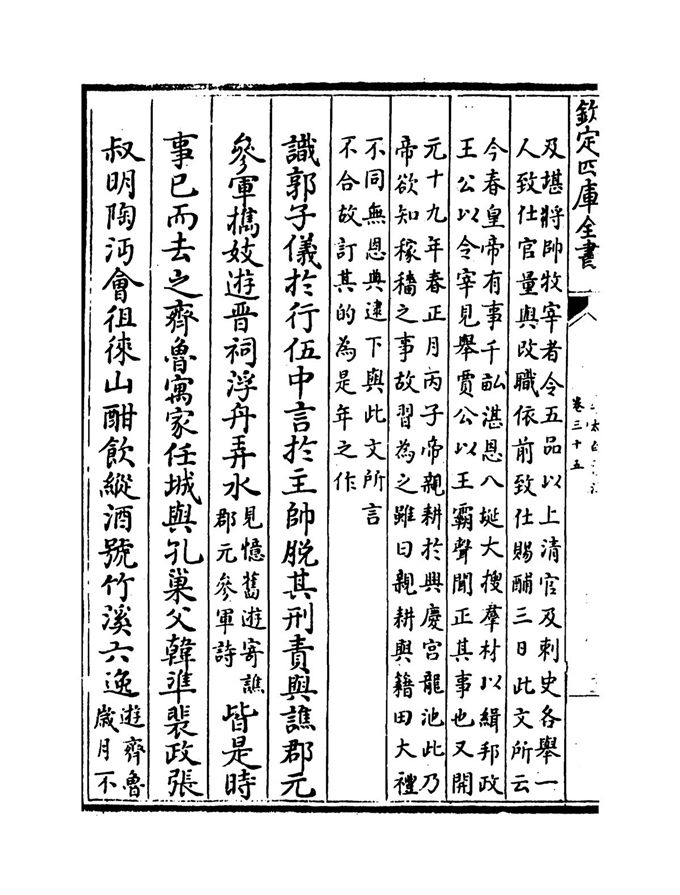 欽定四庫全書
卷三十五
及堪將帥牧宰者令五品以上清官及刺史各舉一
人致仕官量與改職依前致仕賜酺三日此文所云
今春皇帝有事千畝湛恩八埏大搜羣材以緝邦政
王公以令宰見舉賈公以王霸聲聞正其事也又開
元十九年春正月丙子帝親耕於興慶宫龍池此乃
帝欲知稼穡之事故習為之雖曰親耕與籍田大禮
不同無恩典逮下與此文所言
不合故訂其的為是年之作
識郭子儀於行伍中言於主帥脱其刑責與譙郡元
參軍攜妓遊晉祠浮舟弄水見憶舊遊寄譙
郡元參軍詩皆是時
事已而去之齊魯寓家任城與孔巢父韓準裴政張
叔明陶沔會徂徠山酣飲縱酒號竹溪六逸遊齊魯
歲月不